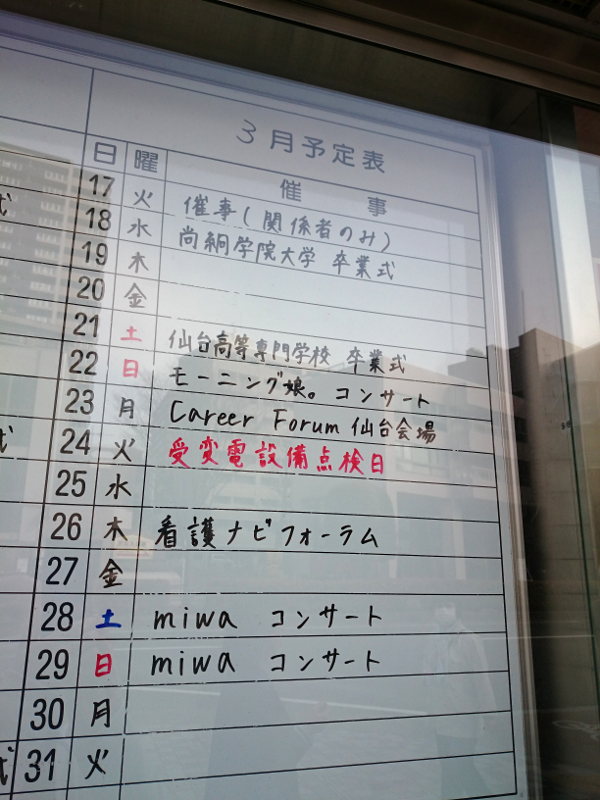 3月予定表
日 曜 催事
17 火 催事(関係者のみ)
18 水 尚絅学院大学 卒業式
19 木
20 金
21 土 仙台高等専門学校 卒業式
22 日 モーニング娘。コンサート
23 月 Career Forum 仙台会場
24 火 受変電設備点検日
25 水
26 木 看護ナビフォーラム
27 金
28 土 miwa コンサート
29 日 miwa コンサート
30 月
31 火